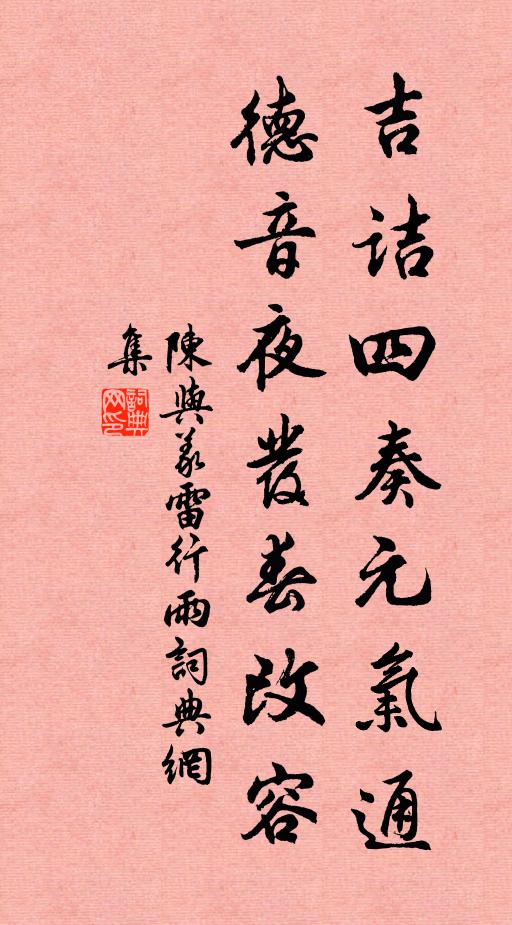 吉語四奏元氣通
德音夜發春改容
陳與義雷行雨詞典網
集
詞典網印